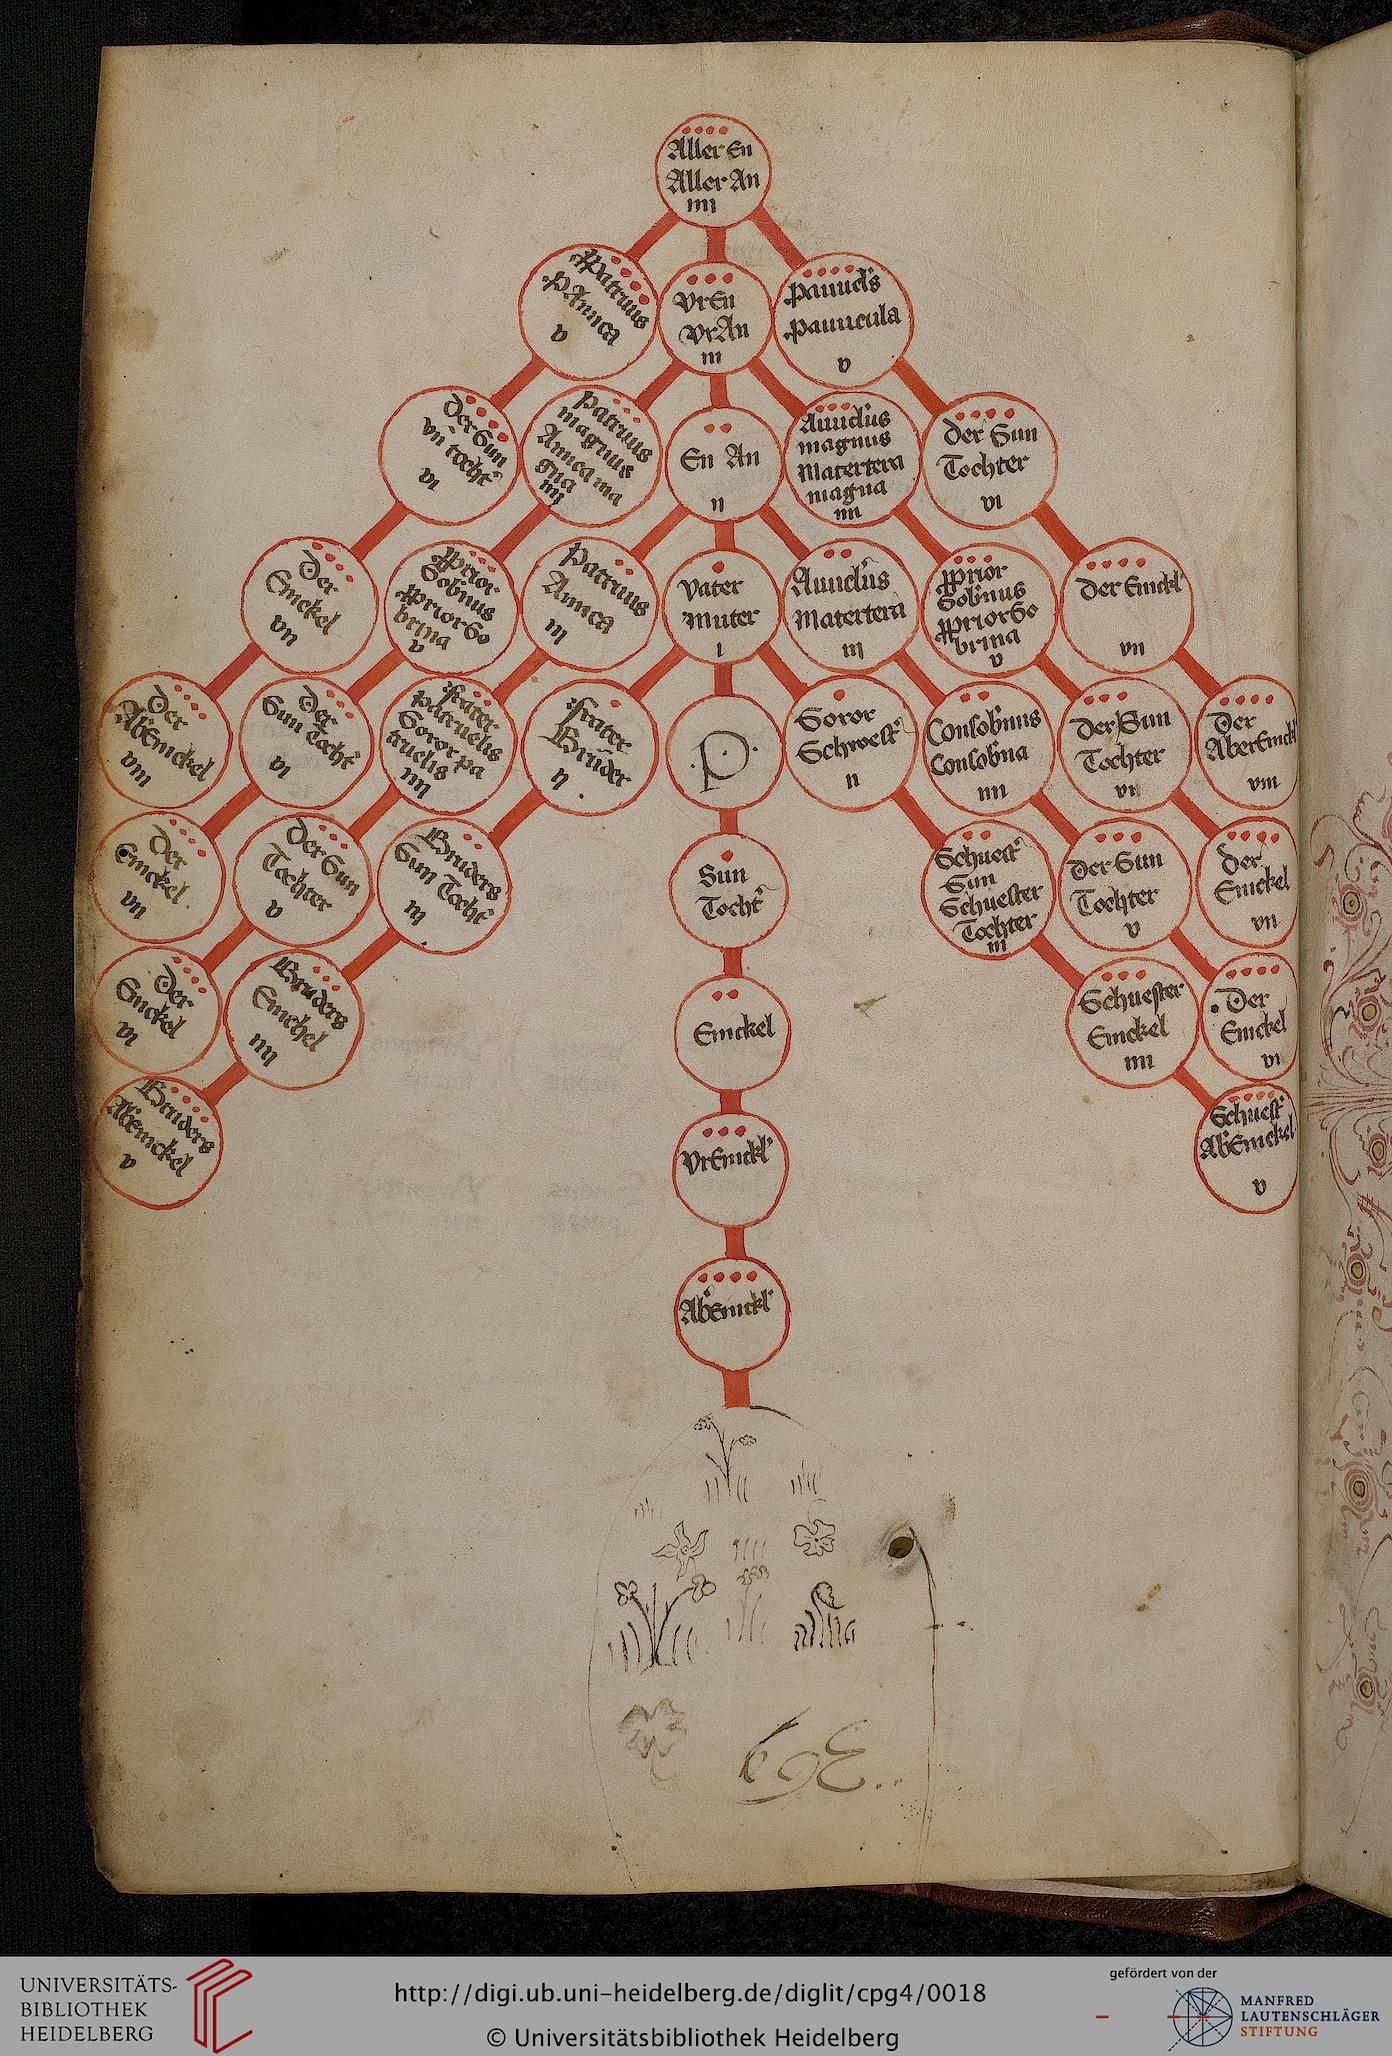 Aller En
Aller An
iiii
PPatruus
PAmica
v
VrEn
VrAn
iii
v
Der Sun
vn̄ tocht᷑
vi
Patruus
magnus
Amica ma
gna
iiii
En An
ii
magnus
Matertera
magna
iiii
Der Sun
Tochter
vi
Der
Einckel
vii
PPrior
Sob'nus
PPrior So
brina
v
Patruus
Amica
iii
Vater
Muter
i
Matertera
iii
PPrior
Sob'nus
PPrior So
brina
v
Der Einckl'
vii
Der
Ab'Einckel
viii
Der
Sun Tocht'
vi
Frater
patruelis
Soror pa
truelis
iiii
Frater
Bruder
ii
.P.
Soror
Schwest'
ii
Consob'nus
Consob'na
iiii
Der Sun
Tochter
vi
Der
AberEinckl
viii
Der
Einckel
vii
Der Sun
Tochter
v
Bruders
Sun Tocht'
iii
Sun
Tocht'
Schuest'
Sun
Schuester
Tochter
iii
Der Sun
Tochter
v
Der
Einckel
vii
Der
Einckel
vi
Bruders
Einckel
iiii
Einckel
Schuester
Einckel
iiii
Der
Einckel
vi
Bruders
Ab'einckel
v
VrEinckl'
Schuest'
Ab'Einckel
v
Ab'Einckl'
UNIVERSITÄTS-
BIBLIOTHEK
HEIDELBERG
http://digi.ub.uni-heidelberg.de/diglit/cpg4/0018
© Universitätsbibliothek Heidelberg
gefördert von der
MANFRED
LAUTENSCHLÄGER
STIFTUNG